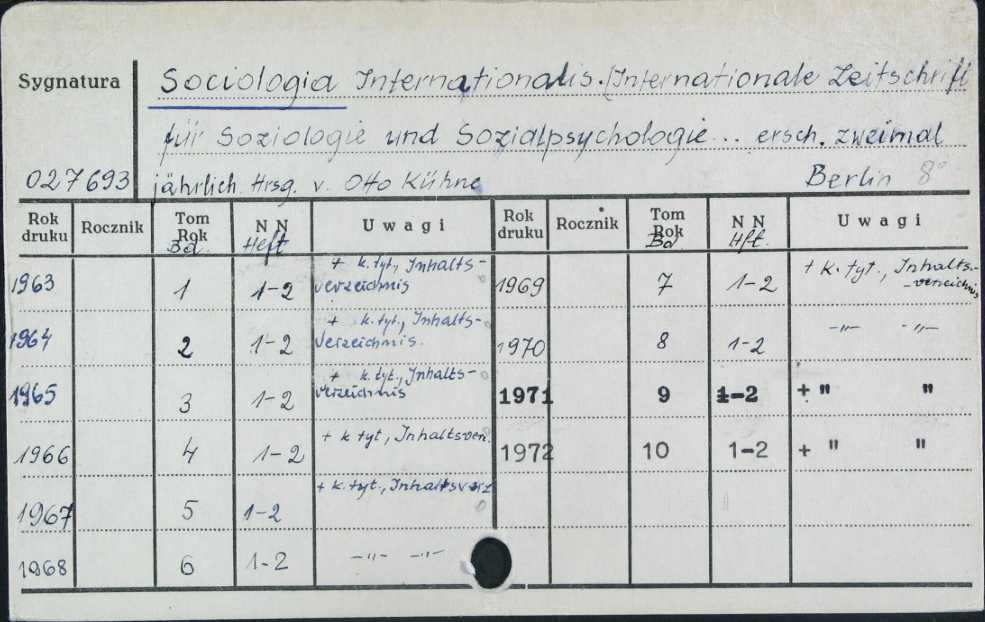 Sygnatura
Sociologia Internationalis. (Internationale Zeitschrift
für Soziologie und Sozialpsychologie... ersch. zweimal
027693 jährlich. Hrsg. v. Otto Kühne Berlin 8°
Rok druku Rocznik Tom Rok Bd. N N Heft Uwagi Rok druku Rocznik Tom Rok Bd N N Hft. Uwagi
1963 1 1-2 + k. tyt., Inhalts-verzeichnis 1969 7 1-2 + k. tyt., Inhalts.-verzeichnis
1964 2 1-2 + k. tyt., Inhalts-verzeichnis. 1970 8 1-2 -"- -"-
1965 3 1-2 + k. tyt., Inhalts-verzeichnis 1971 9 1-2 + " "
1966 4 1-2 + k tyt, Inhaltsver. 1972 10 1-2 + " "
1967 5 1-2 + k. tyt., Inhaltsverz
1968 6 1-2 -"- -"-